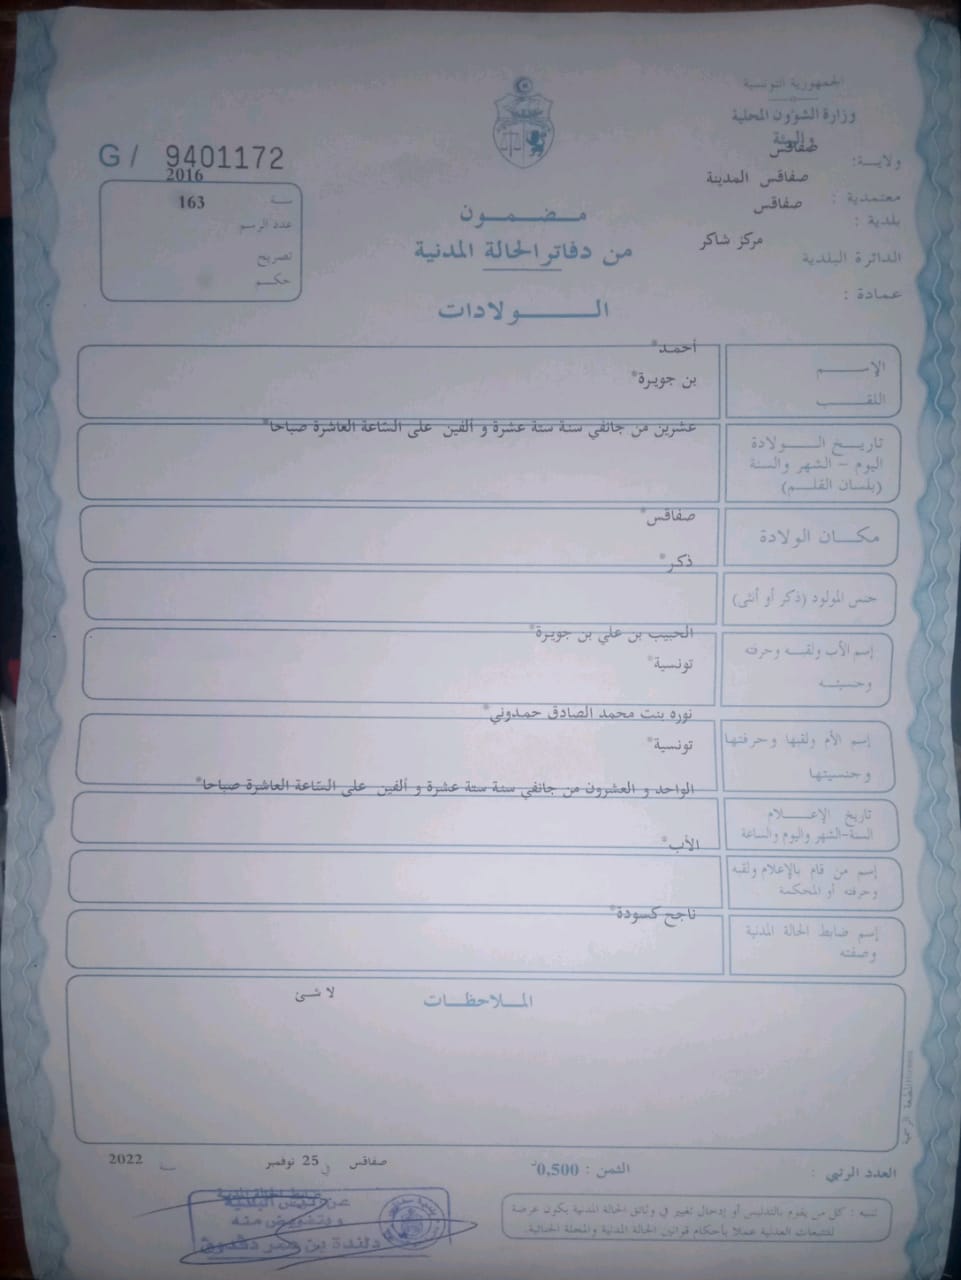 الجمهورية التونسية
وزارة الشؤون المحلية
والبيئة
ولاية: صفاقس
معتمدية : صفاقس المدينة
بلدية : صفاقس
الدائرة البلدية مركز شاكر
عمادة :
G / 9401172
سنة 2016
عدد الرسم 163
تصريح
حكم
مضمون
من دفاتر الحالة المدنية
الولادات
الإسم أحمد*
اللقب بن جويرة*
تاريخ الولادة
اليوم - الشهر والسنة
(بلسان القلم)
عشرين من جانفي سنة ستة عشرة و ألفين على الساعة العاشرة صباحا*
مكان الولادة صفاقس*
جنس المولود (ذكر أو أنثى) ذكر*
إسم الأب ولقبه وحرفته
وجنسيته
الحبيب بن علي بن جويرة*
تونسية*
إسم الأم ولقبها وحرفتها
وجنسيتها
نوره بنت محمد الصادق حمدوني*
تونسية*
تاريخ الإعلام
السنة-الشهر واليوم والساعة
الواحد و العشرون من جانفي سنة ستة عشرة و ألفين على الساعة العاشرة صباحا*
إسم من قام بالإعلام ولقبه
وحرفته أو المحكمة
الأب*
إسم ضابط الحالة المدنية
وصفته
ناجح كسودة*
الملاحظات
لا شئ
العدد الرتبي :
الثمن : 0,500د
صفاقس في 25 نوفمبر سنة 2022
تنبيه : كل من يقوم بالتدليس أو إدخال تغيير في وثائق الحالة المدنية يكون عرضة
للتتبعات العدلية عملا بأحكام قوانين الحالة المدنية والمجلة الجنائية.
ضابط الحالة المدنية
عن رئيس البلدية
وبتفويض منه